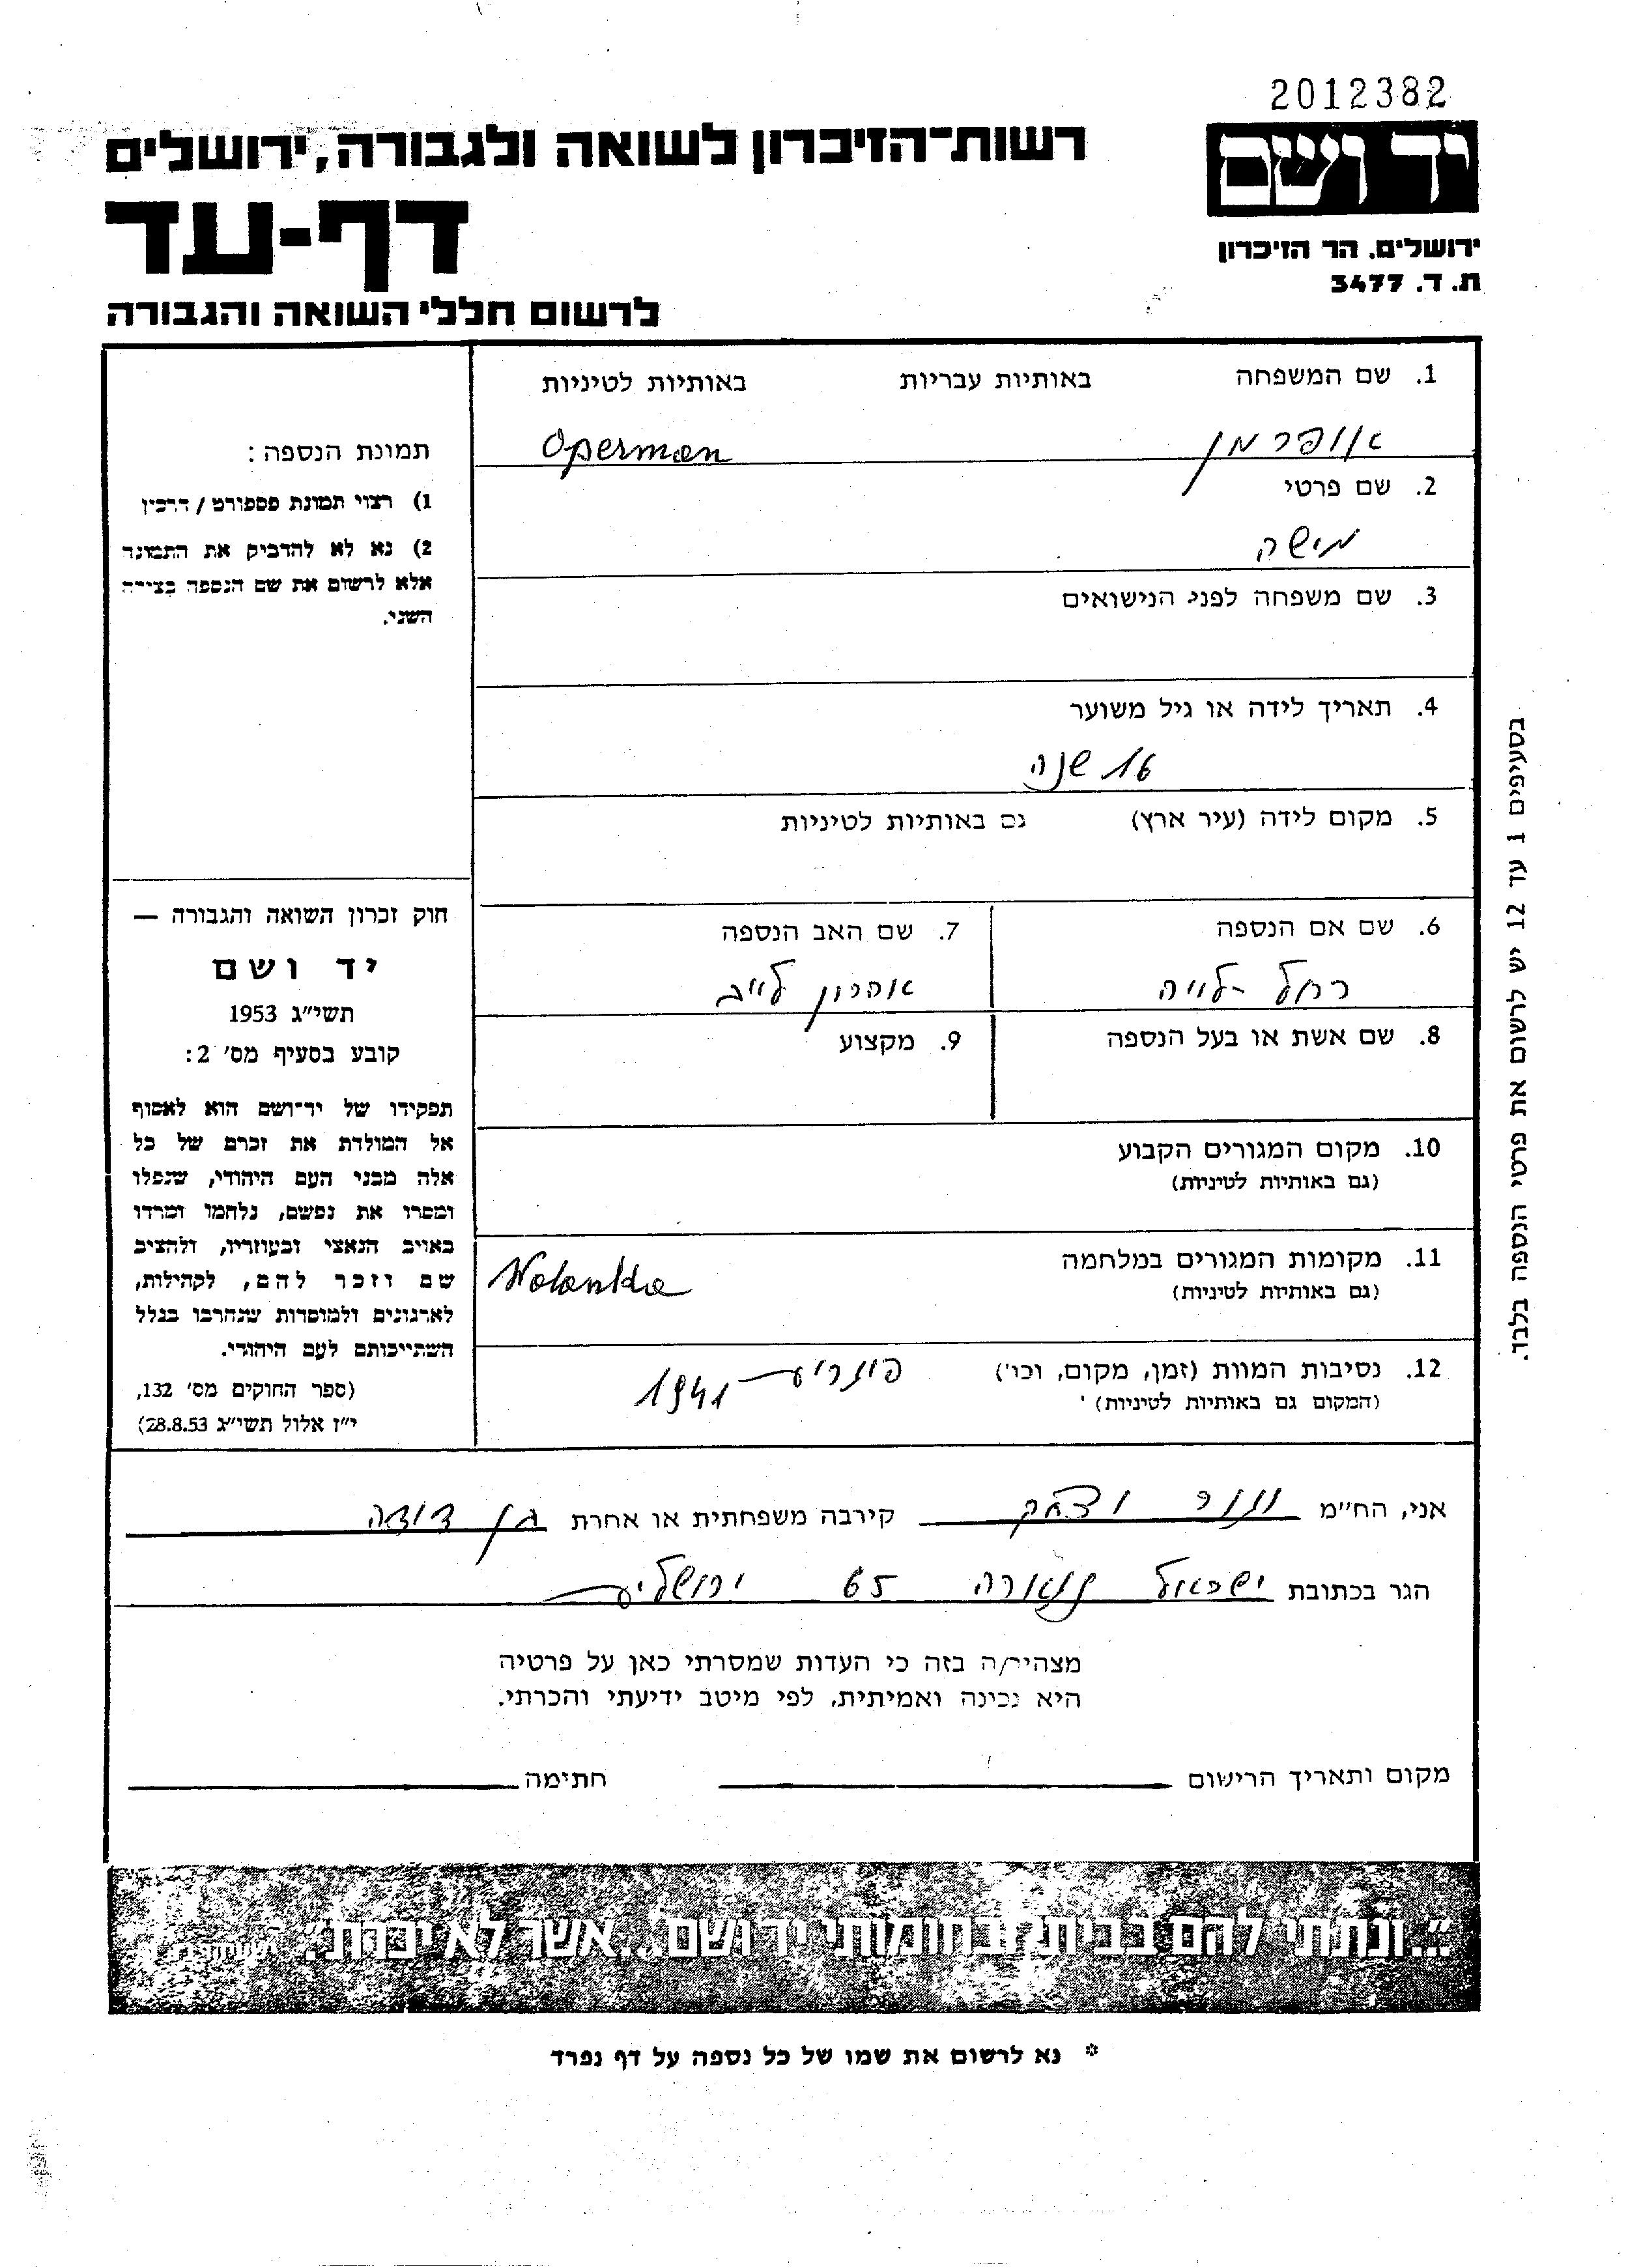 2012382
יד ושם
רשות־הזיכרון לשואה ולגבורה, ירושלים
דף-עד
ירושלים. הר הזיכרון
ת. ד. 3477
לרשום חללי השואה והגבורה
1. שם המשפחה באותיות עבריות באותיות לטיניות
אופרמן Operman
2. שם פרטי
מישה
3. שם משפחה לפני הנישואים
4. תאריך לידה או גיל משוער
16 שנה
5. מקום לידה (עיר ארץ) גם באותיות לטיניות
6. שם אם הנספה 7. שם האב הנספה
רחל לייה אהרון לייב
8. שם אשת או בעל הנספה 9. מקצוע
10. מקום המגורים הקבוע
(גם באותיות לטיניות)
11. מקומות המגורים במלחמה
(גם באותיות לטיניות)
12. נסיבות המוות (זמן, מקום, וכו')
(המקום גם באותיות לטיניות)
1941
תמונת הנספה:
1) רצוי תמונת פספורט / דרכון
2) נא לא להדביק את התמונה
אלא לרשום את שם הנספה בצידה
השני.
חוק זכרון השואה והגבורה —
יד ושם
תשי״ג 1953
קובע בסעיף מס׳ 2:
תפקידו של יד־ושם הוא לאסוף
אל המולדת את זכרם של כל
אלה מבני העם היהודי, שנפלו
ומסרו את נפשם, נלחמו ומרדו
באויב הנאצי ובעוזריו, ולהציב
שם וזכר להם, לקהילות,
לארגונים ולמוסדות שנחרבו בגלל
השתייכותם לעם היהודי.
(ספר החוקים מס׳ 132,
י״ז אלול תשי״ג 28.8.53)
בסעיפים 1 עד 12 יש לרשום את פרטי הנספה בלבד.
אני, הח״מ יצחק קירבה משפחתית או אחרת בן דודה
הגר בכתובת ישראל 65 ירושלים
מצהיר/ה בזה כי העדות שמסרתי כאן על פרטיה
היא נכונה ואמיתית, לפי מיטב ידיעתי והכרתי.
מקום ותאריך הרישום חתימה
״...ונתתי להם בביתי ובחומותי יד ושם...אשר לא יכרת״.
* נא לרשום את שמו של כל נספה על דף נפרד